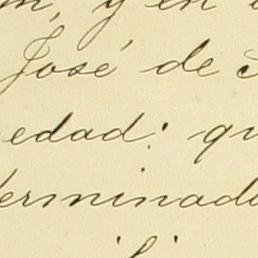 y en
José de
edad: qu
erminado